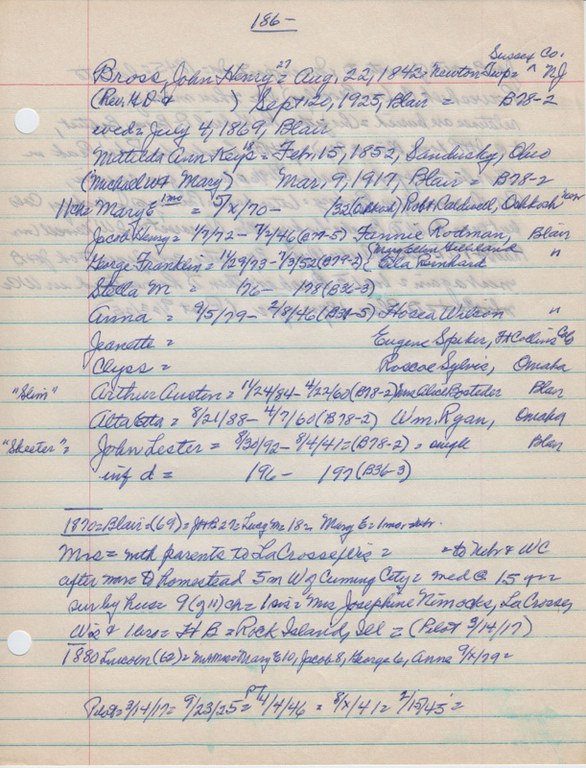 186-
Sussex Co.
Bross, John Henry 27 = Aug, 22, 1842= Newton Twp = ^ NJ
(Rev. H.D & ) Sept 20, 1925, Blair = B78-2
wed = July 4, 1869, Blair
Matilda Ann Keys = Feb, 15, 1852, Sandusky, Ohio
(Michael W & Mary) Mar, 9, 1917, Blair = B78-2
11ch = Mary E 1mo = 5/x/70- /32 (Oshkosh) Robt Caldwell, Oshkosh
Jacob Henry = 1/7/72 - 7/2/46 (B79-5) Fannie Rodman, Blair
George Franklin = 11/29/73 - 7/3/52 (B79-2) Ella Reinhard "
Stella M = 76- 178 (B36-3)
Anna = 9/5/79- 2/8/46 (B31-5) Hosea Wilson "
Jeanette = Eugene Spiker, Ft Collins Colo
Clyss = Roscoe Sylvis, Omaha
"Slim" Arthur Austen = 11/24/84- 4/22/60 (B78-2) Blair
Alta = 8/21/88- 4/7/60 (B78-2) Wm. Ryan, Omaha
"Skeeter" = John Lester = 8/30/92- 8/4/41 = (B78-2) = single Blair
inf d = 196- 197 (B36-3)
1870 = Blair (69) = JHB 27 = Lucy M = 18 = Mary E = 1mo, Nebr.
Mrs = with parents to LaCrosse, Wis = = to Nebr & WC
after mar = to homestead 5m W of Cuming City = med @ 15 yr =
sur by hus = 9 (of 11) ch = 1 sis = Mrs Josephine Nimocks, LaCrosse,
Wis & 1 bro = H B = Rock Island, Ill = (Pilot 3/14/17)
1880 Lincoln (62) = Mary E 10, Jacob 8, George 6, Anna 9/x/79 =
Pilot = 3/14/17 = 9/23/25 = PT 4/4/46 = 8/x/41 = 2/15/45 =